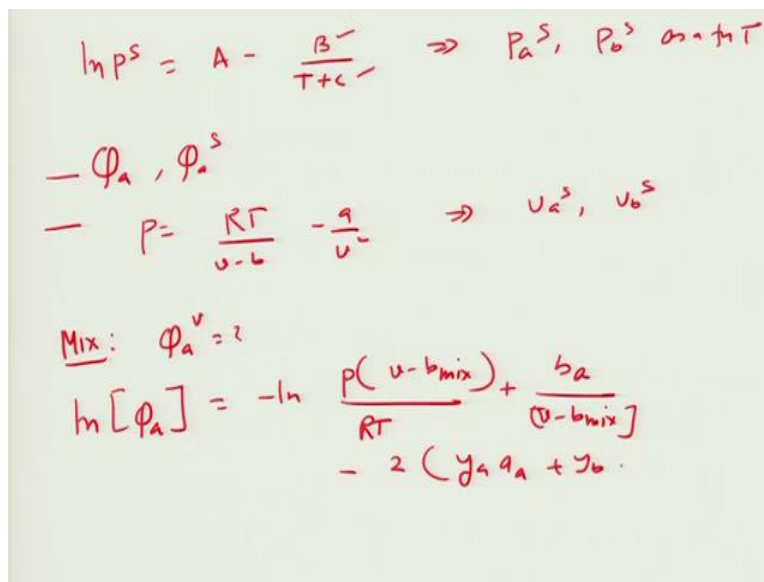 ln p^s = A - B/(T+c) ⇒ P_a^s, P_b^s as a fn T
— φ_a, φ_a^s
— P = RT/(v-b) - a/v² ⇒ v_a^s, v_b^s
Mix: φ_a^v = ?
ln[φ_a] = -ln p(v-b_mix)/RT + b_a/(v-b_mix]
- 2(y_a a_a + y_b .